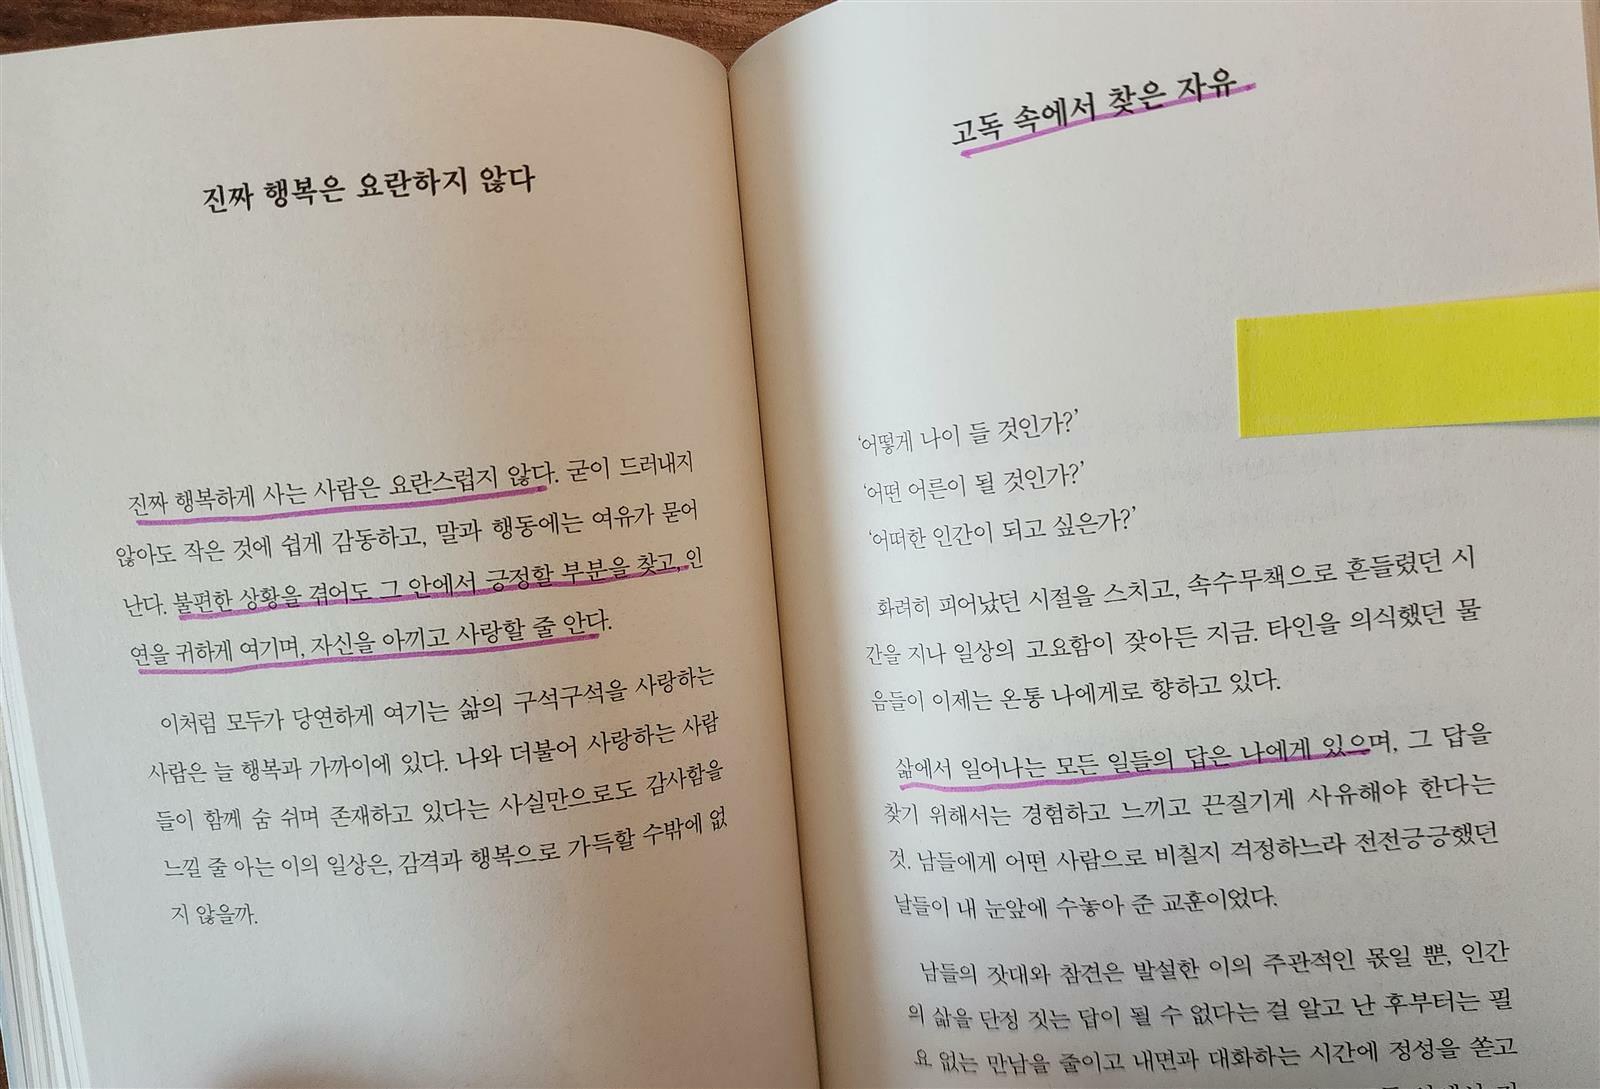 진짜 행복은 요란하지 않다
진짜 행복하게 사는 사람은 요란스럽지 않다. 굳이 드러내지
않아도 작은 것에 쉽게 감동하고, 말과 행동에는 여유가 묻어
난다. 불편한 상황을 겪어도 그 안에서 긍정할 부분을 찾고, 인
연을 귀하게 여기며, 자신을 아끼고 사랑할 줄 안다.
이처럼 모두가 당연하게 여기는 삶의 구석구석을 사랑하는
사람은 늘 행복과 가까이에 있다. 나와 더불어 사랑하는 사람
들이 함께 숨 쉬며 존재하고 있다는 사실만으로도 감사함을
느낄 줄 아는 이의 일상은, 감격과 행복으로 가득할 수밖에 없
지 않을까.
고독 속에서 찾은 자유
‘어떻게 나이 들 것인가?’
‘어떤 어른이 될 것인가?’
‘어떠한 인간이 되고 싶은가?’
화려히 피어났던 시절을 스치고, 속수무책으로 흔들렸던 시
간을 지나 일상의 고요함이 잦아든 지금. 타인을 의식했던 물
음들이 이제는 온통 나에게로 향하고 있다.
삶에서 일어나는 모든 일들의 답은 나에게 있으며, 그 답을
찾기 위해서는 경험하고 느끼고 끈질기게 사유해야 한다는
것. 남들에게 어떤 사람으로 비칠지 걱정하느라 전전긍긍했던
날들이 내 눈앞에 수놓아 준 교훈이었다.
남들의 잣대와 참견은 발설한 이의 주관적인 몫일 뿐, 인간
의 삶을 단정 짓는 답이 될 수 없다는 걸 알고 난 후부터는 필
요 없는 만남을 줄이고 내면과 대화하는 시간에 정성을 쏟고